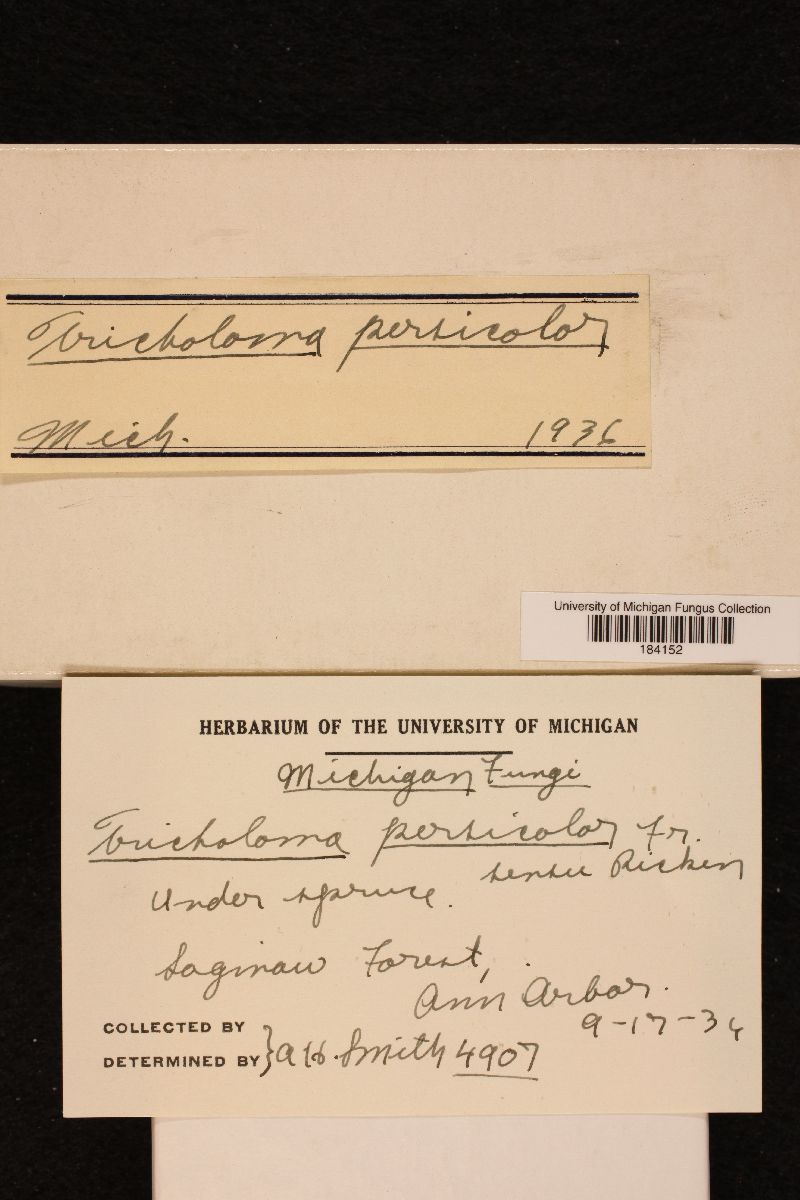 Tricholoma persicolor
Mich. 1936
University of Michigan Fungus Collection
184152
HERBARIUM OF THE UNIVERSITY OF MICHIGAN
Michigan Fungi
Tricholoma persicolor Fr.
sensu Ricken
Under spruce.
Saginaw Forest,
Ann Arbor.
9-17-36
COLLECTED BY
DETERMINED BY } A.H. Smith 4907